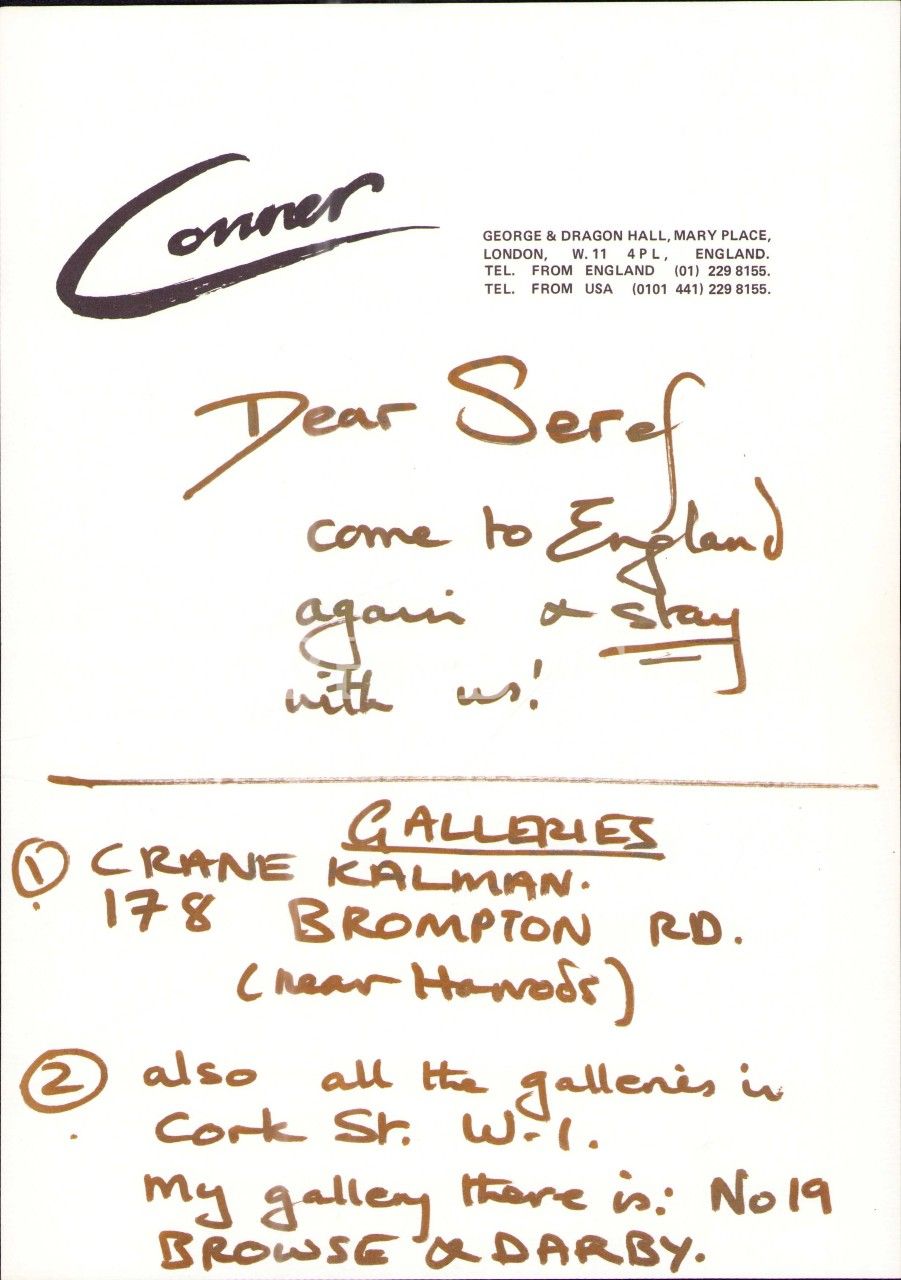 Conner
GEORGE & DRAGON HALL, MARY PLACE,
LONDON, W.11 4PL, ENGLAND.
TEL. FROM ENGLAND (01) 229 8155.
TEL. FROM USA (0101 441) 229 8155.
Dear Seref
come to England
again & stay
with us!
GALLERIES
1 CRANE KALMAN.
178 BROMPTON RD.
(near Harrods)
2 also all the galleries in
Cork St. W-1.
My gallery there is: No 19
BROWSE & DARBY.